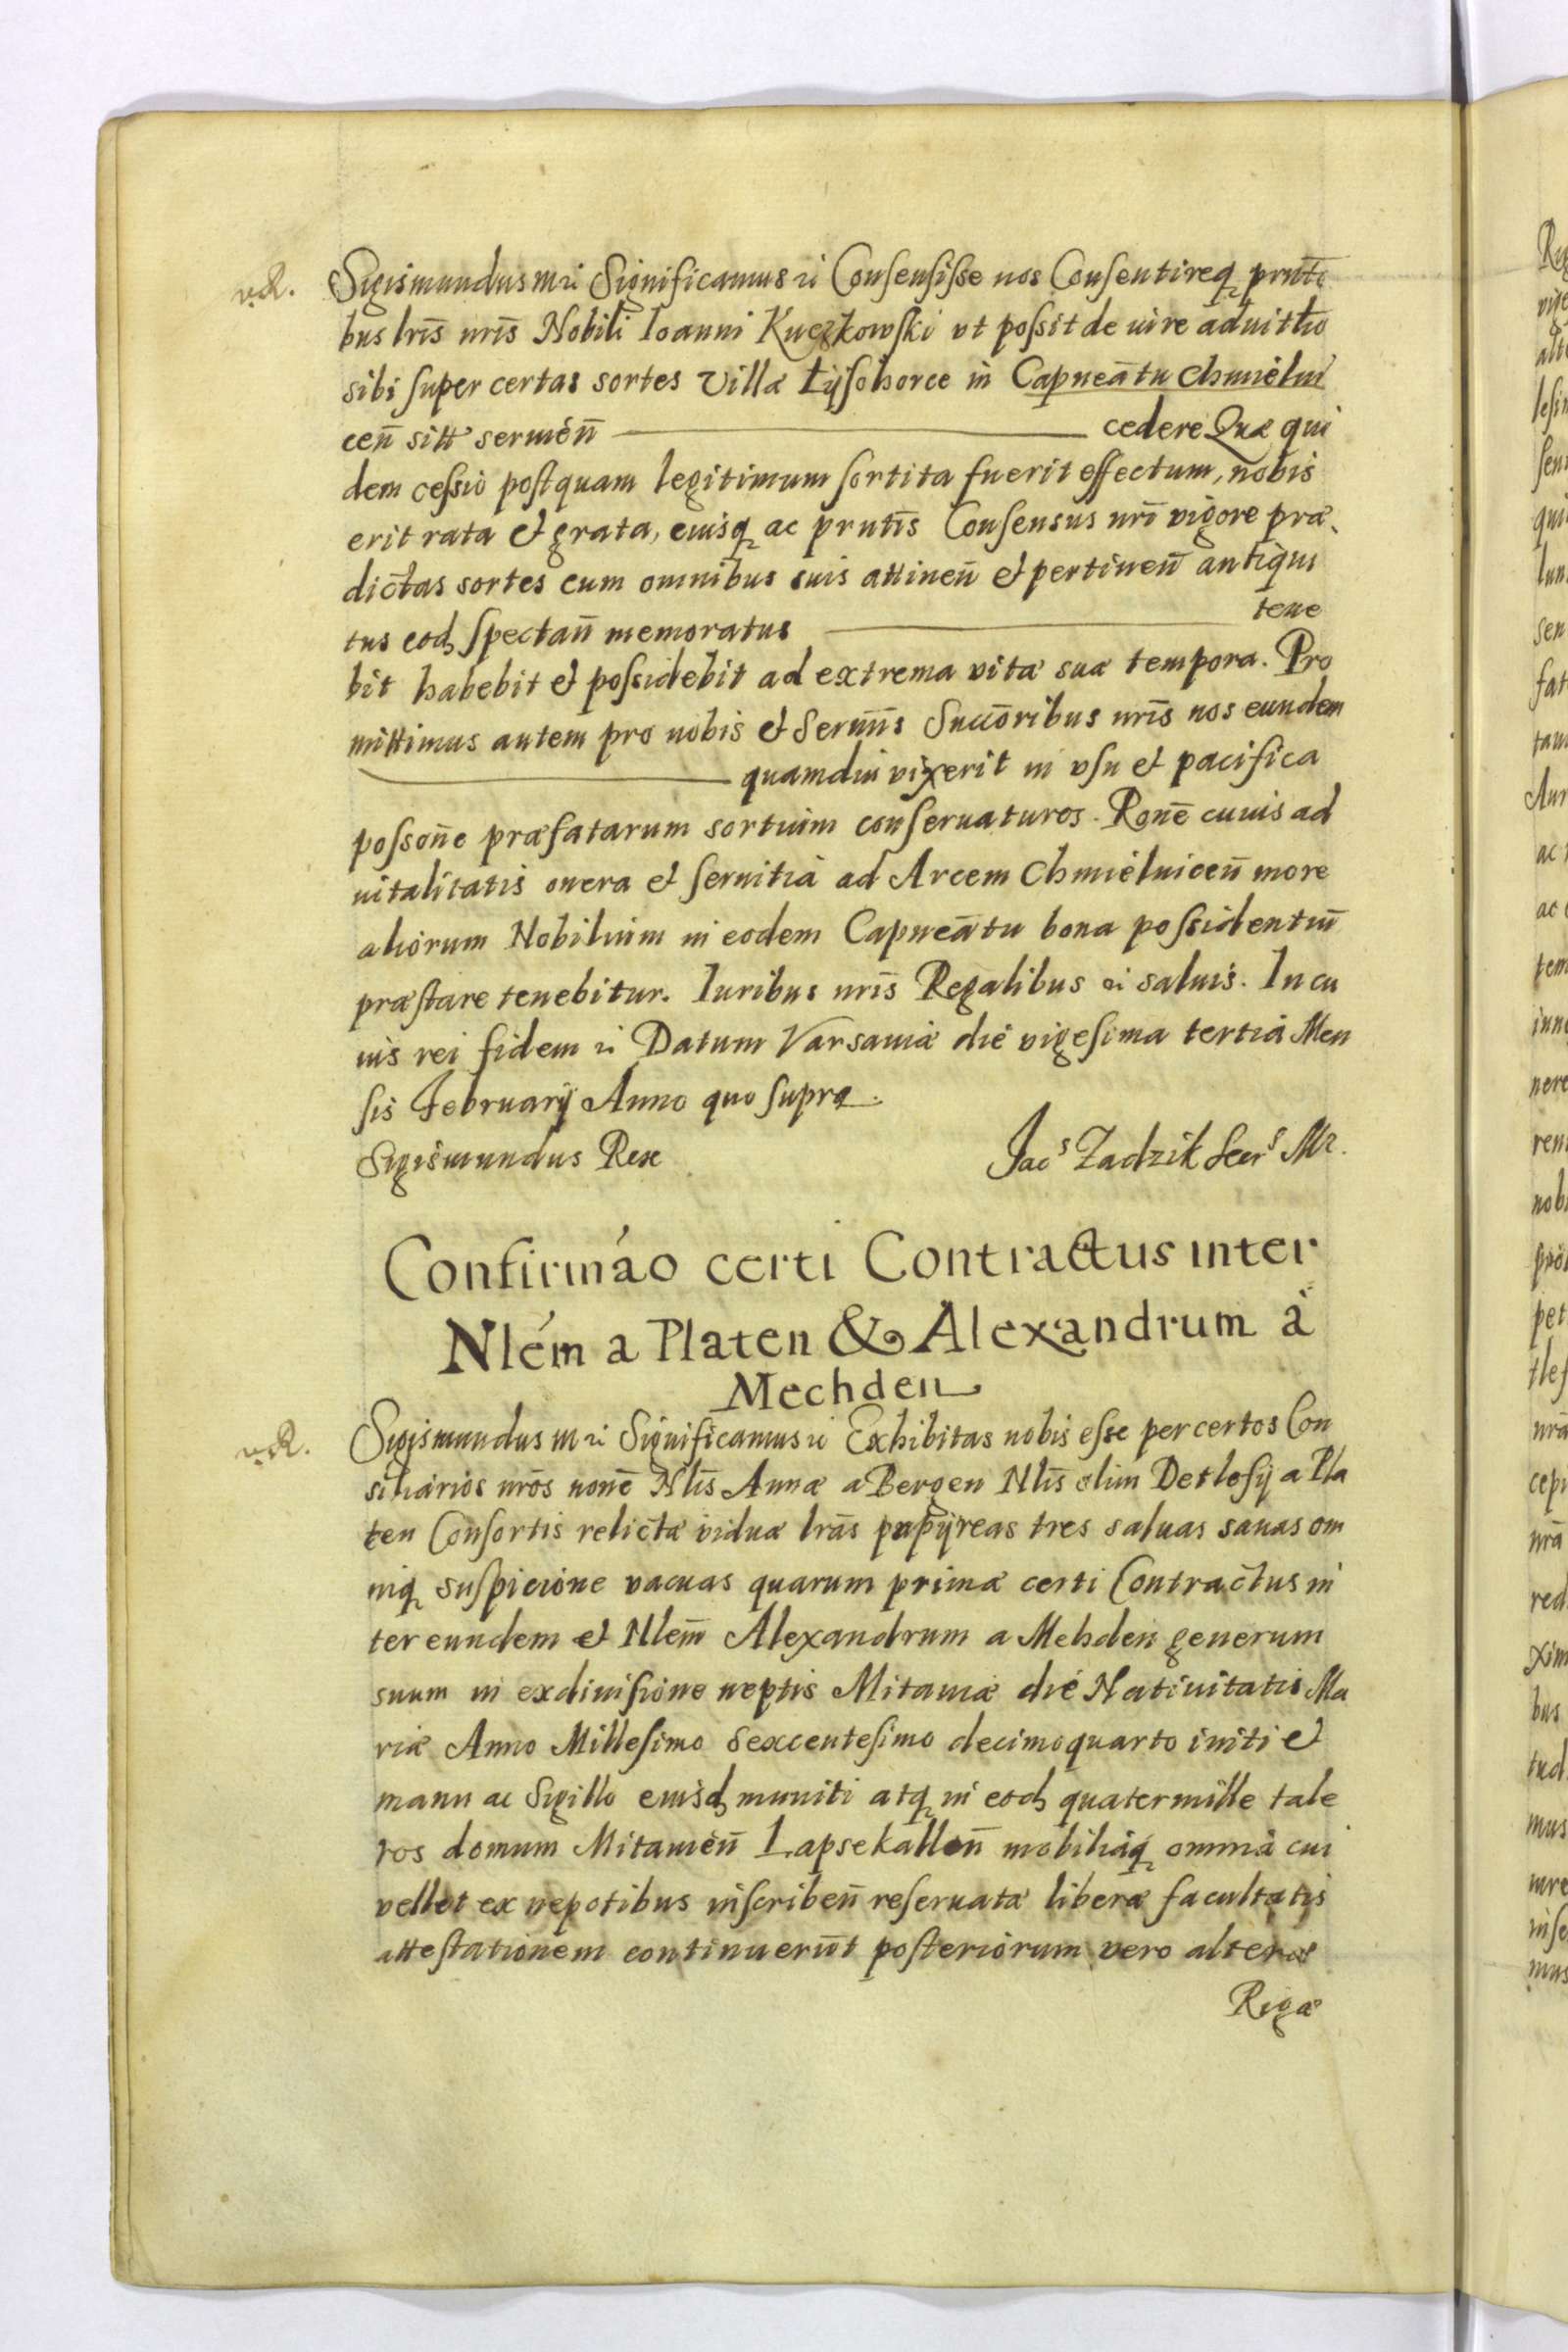 Sigismundus III Significamus Consensisse nos Consentireq prñti
bus lris nris Nobili Ioanni Kuczkowski vt possit de iure aduitlio
sibi super certas sortes villæ Łysohorce in Capneātu Chmielni
ceñ sitt sermēñ cedere Quæ qui
dem cessio postquam legitimum sortita fuerit effectum, nobis
erit rata et grata, eiusq ac prntis Consensus nri vigore præ
dictas sortes cum omnibus suis attineñ et pertineñ antiqui
tus eod spectañ memoratus tene
bit habebit et possidebit ad extrema vitæ suæ tempora. Pro
mittimus autem pro nobis et Sermis Succōribus nris nos eundem
quamdiu vixerit in vsu et pacifica
possoñe præfatarum sortium conseruaturos. Roñe cuius ad
uitalitatis onera et seruitia ad Arcem Chmielniceñ more
aliorum Nobilium in eodem Capneātu bona possidentiū
præstare tenebitur. Iuribus nris Regalibus saluis. In cu
ius rei fidem Datum Varsauiæ die vigesima tertia Men
sis February Anno quo supra.
Sigismundus Rex Jacs Zadzik Secrs Mr.
Confirmáo certi Contractus inter
Nlém a Platen & Alexandrum à
Mechden
Sigismundus III Significamus Exhibitas nobis esse per certos Con
siliarios nros noñe Nlis Annæ a Bergen Nlis olim Detlefij a Pla
ten Consortis relictæ viduæ lras papÿreas tres saluas sanas om
niq suspicione vacuas quarum primæ certi Contractus in
ter eundem et Nlem Alexandrum a Mehden generum
suum in exdiuisione neptis Mitauiæ die Natiuitatis Ma
riæ Anno Millesimo Sexcentesimo decimoquarto initi et
manu ac Sigillo eiusd muniti atq in eod quatermille tale
ros domum Mitauieñ Lapsekalleñ mobiliaq omnia cui
vellet ex nepotibus inscribeñ reseruatæ liberæ facultatis
attestationem continuerūt posteriorum vero alteræ
Rigæ